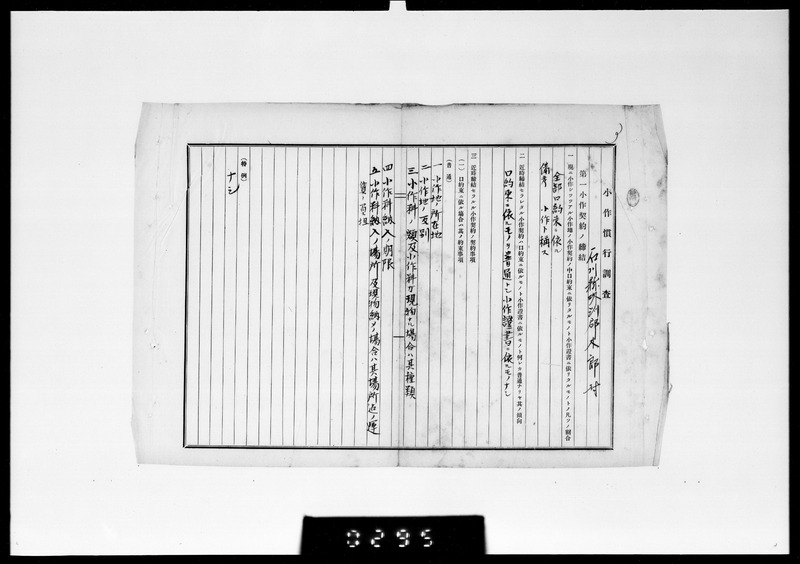 小作慣行調査
石川縣 郡木郎村
第一小作契約ノ締結
一 現ニ小作シツツアル小作地ノ小作契約ノ中口約束ニ依リタルモノト小作證書ニ依リタルモノトノ凡ソノ割合
全部口約束ニ依ル
備考 小作ト稱ス
二 近時締結セラレタル小作契約ハ口約束ニ依ルモノト小作證書ニ依ルモノト何レカ普通ナリヤ其ノ傾向
口約束ニ依ルモノヲ普通トシ小作證書ニ依ルモノナシ
三 近時締結セラルル小作契約ノ契約事項
(一) 口約束ニ依ル場合ハ其ノ約束事項
(普通)
一 小作地ノ所在地
二 小作地ノ反別
三 小作料ノ額及小作料ガ現物ナル場合ハ其種類
四 小作料納入ノ期限
五 小作料納入ノ場所及現物納メノ場合ハ其場所迄ノ運
賃ノ負担
(特例)
ナシ
0295